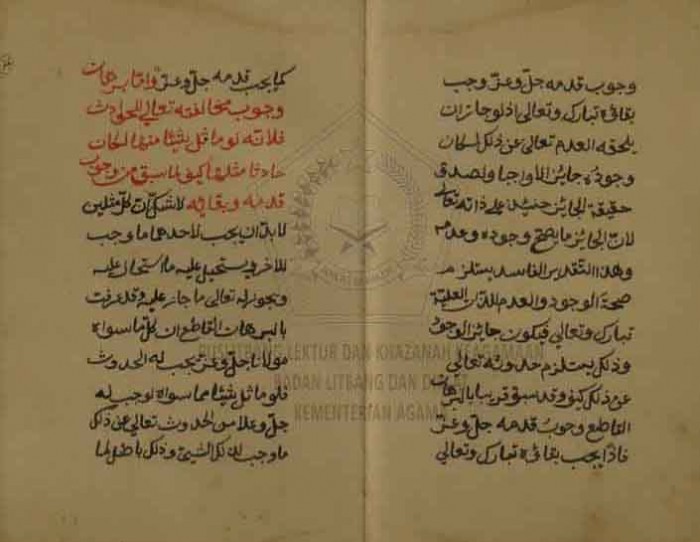 وجوب قدمه جلّ وعزّ وجب
بقاؤه تبارك وتعالى اذ لو جاز ان
يلحقه العدم تعالى عن ذلك لكان
وجوده جايزا لا واجبا ولصدق
حقيقة الجائز حينئذ على ذاته تعالى
لان الجائز ما يصح وجوده وعدمه
وهذا التقدير الفاسد يستلزم
صحة الوجود والعدم للذات العلية
تبارك وتعالى فيكون جائز الوجود
وذلك يستلزم حدوثه تعالى
عن ذلك كيف وقد سبق قريبا بالبرهان
القاطع وجوب قدمه جلّ وعزّ
فاذًا يجب بقاؤه تبارك وتعالى
كما يجب قدمه جلّ وعزّ واما برهان
وجوب مخالفته تعالى للحوادث
فلانه لو ماثل شيئا منها لكان
حادثا مثلها كيف لما سبق من وجوب
قدمه وبقائه لا شك ان كل مثلين
لا بد ان يجب لاحدهما ما وجب
للاخر ويستحيل عليه ما استحال عليه
ويجوز له تعالى ما جاز عليه وقد عرفت
بالبرهان القاطع ان كل ما سواه
مولانا جلّ وعزّ يجب له الحدوث
فلو ماثل شيئا مما سواه لوجب له
جلّ وعلا من الحدوث تعالى عن ذلك
ما وجب لذلك الشيئ وذلك باطل لما
PUSLITBANG LEKTUR DAN KHAZANAH KEAGAMAAN
BADAN LITBANG DAN DIKLAT
KEMENTERIAN AGAMA